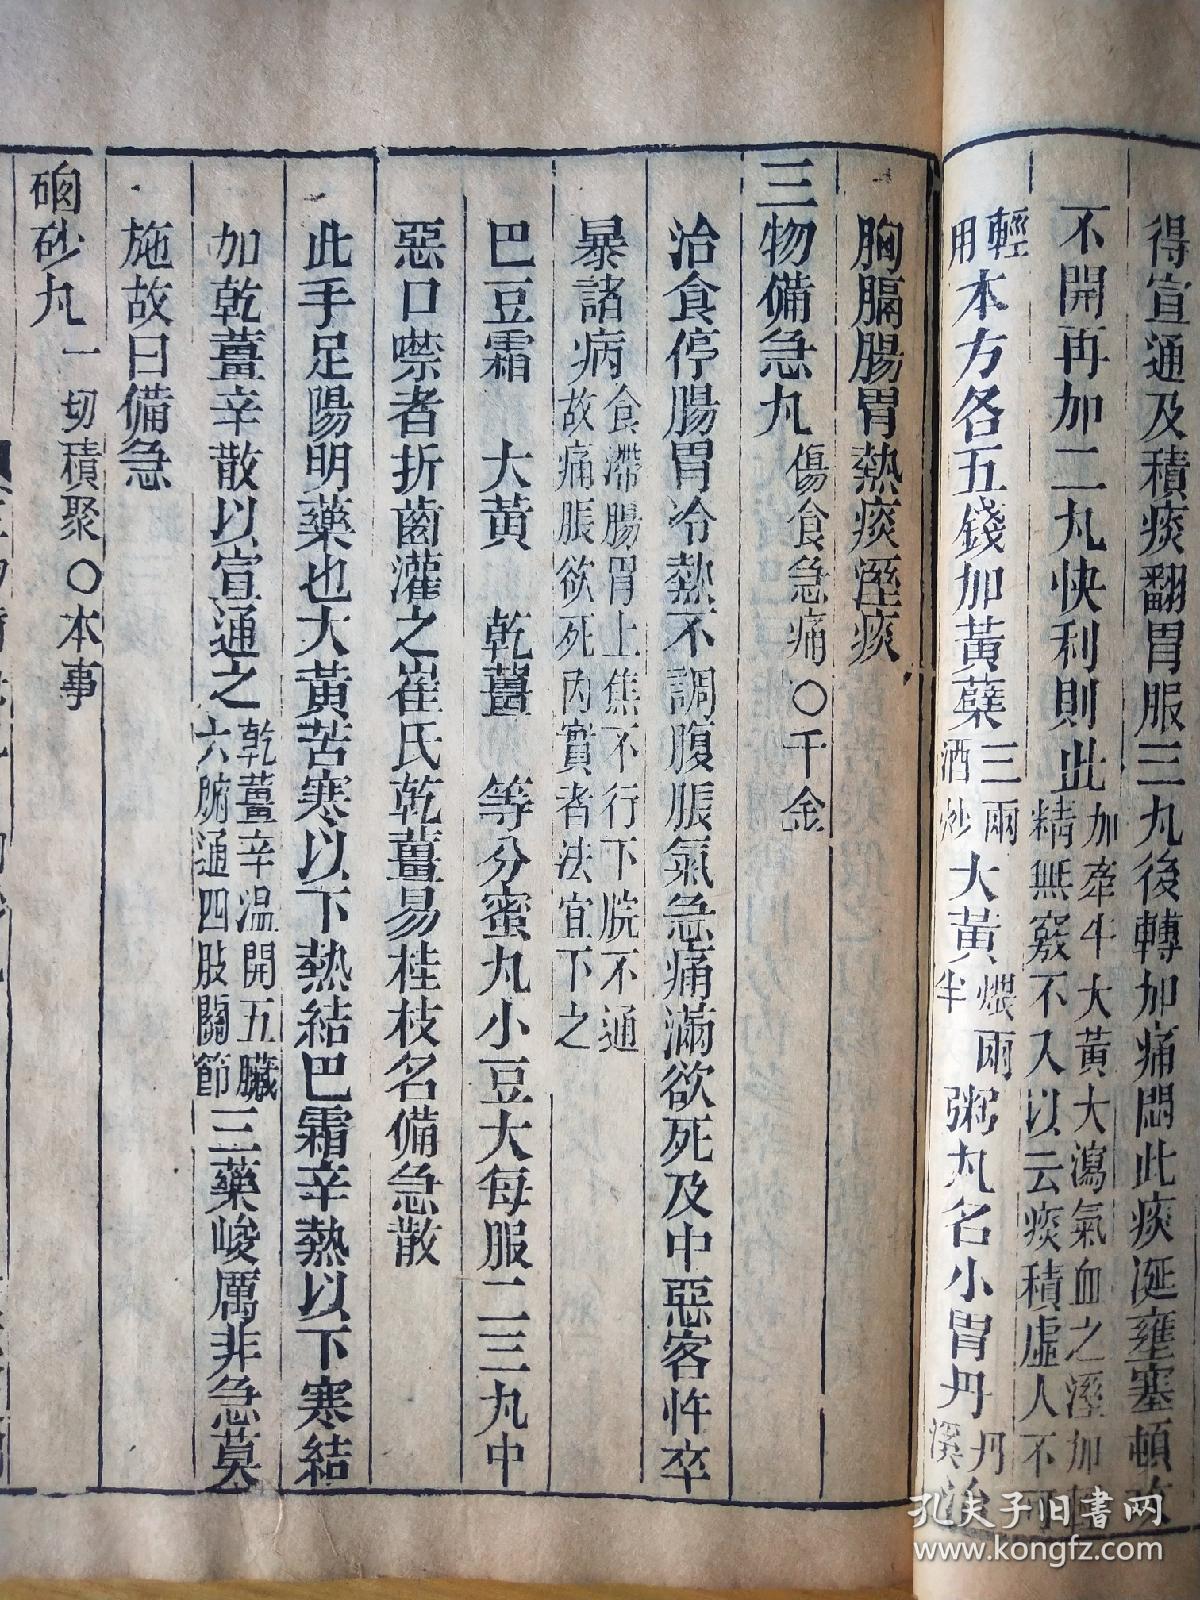 得宣通及積痰翻胃服三丸後轉加痛悶此痰涎壅塞頓攻
不開再加二丸快利則止加牽牛大黃大瀉氣血之溼加輕
精無竅不入以云痰積虛人不可
輕用本方各五錢加黃蘗三兩酒炒大黃煨兩半粥丸名小胃丹丹溪治
胸膈腸胃熱痰溼痰
三物備急丸傷食急痛〇千金
治食停腸胃冷熱不調腹脹氣急痛滿欲死及中惡客忤卒
暴諸病食滯腸胃上焦不行下脘不通
故痛脹欲死內實者法宜下之
巴豆霜 大黃 乾薑 等分蜜丸小豆大每服二三丸中
惡口噤者折齒灌之崔氏乾薑易桂枝名備急散
此手足陽明藥也大黃苦寒以下熱結巴霜辛熱以下寒結
加乾薑辛散以宣通之乾薑辛溫開五臟
六腑通四肢關節三藥峻厲非急莫
施故曰備急
硇砂丸一切積聚〇本事
孔夫子旧书网
www.kongfz.com